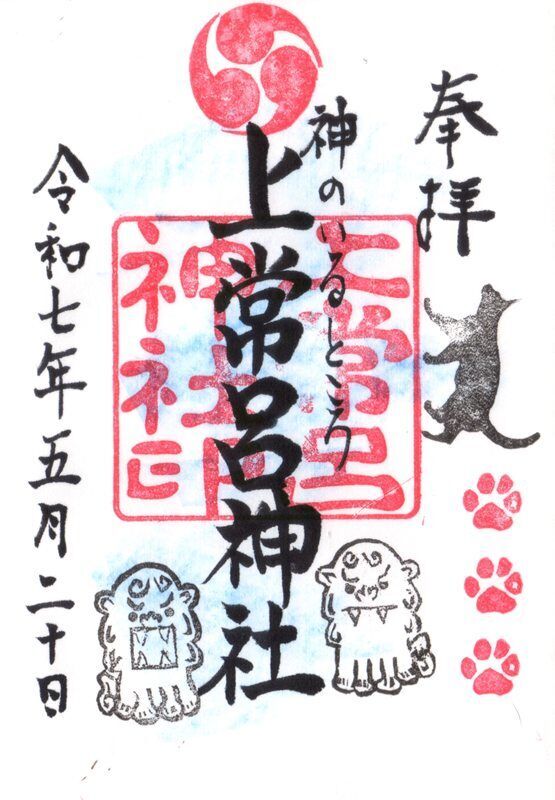 奉拝
神のいるところ
上常呂神社
上常呂
神社印
令和七年五月二十日